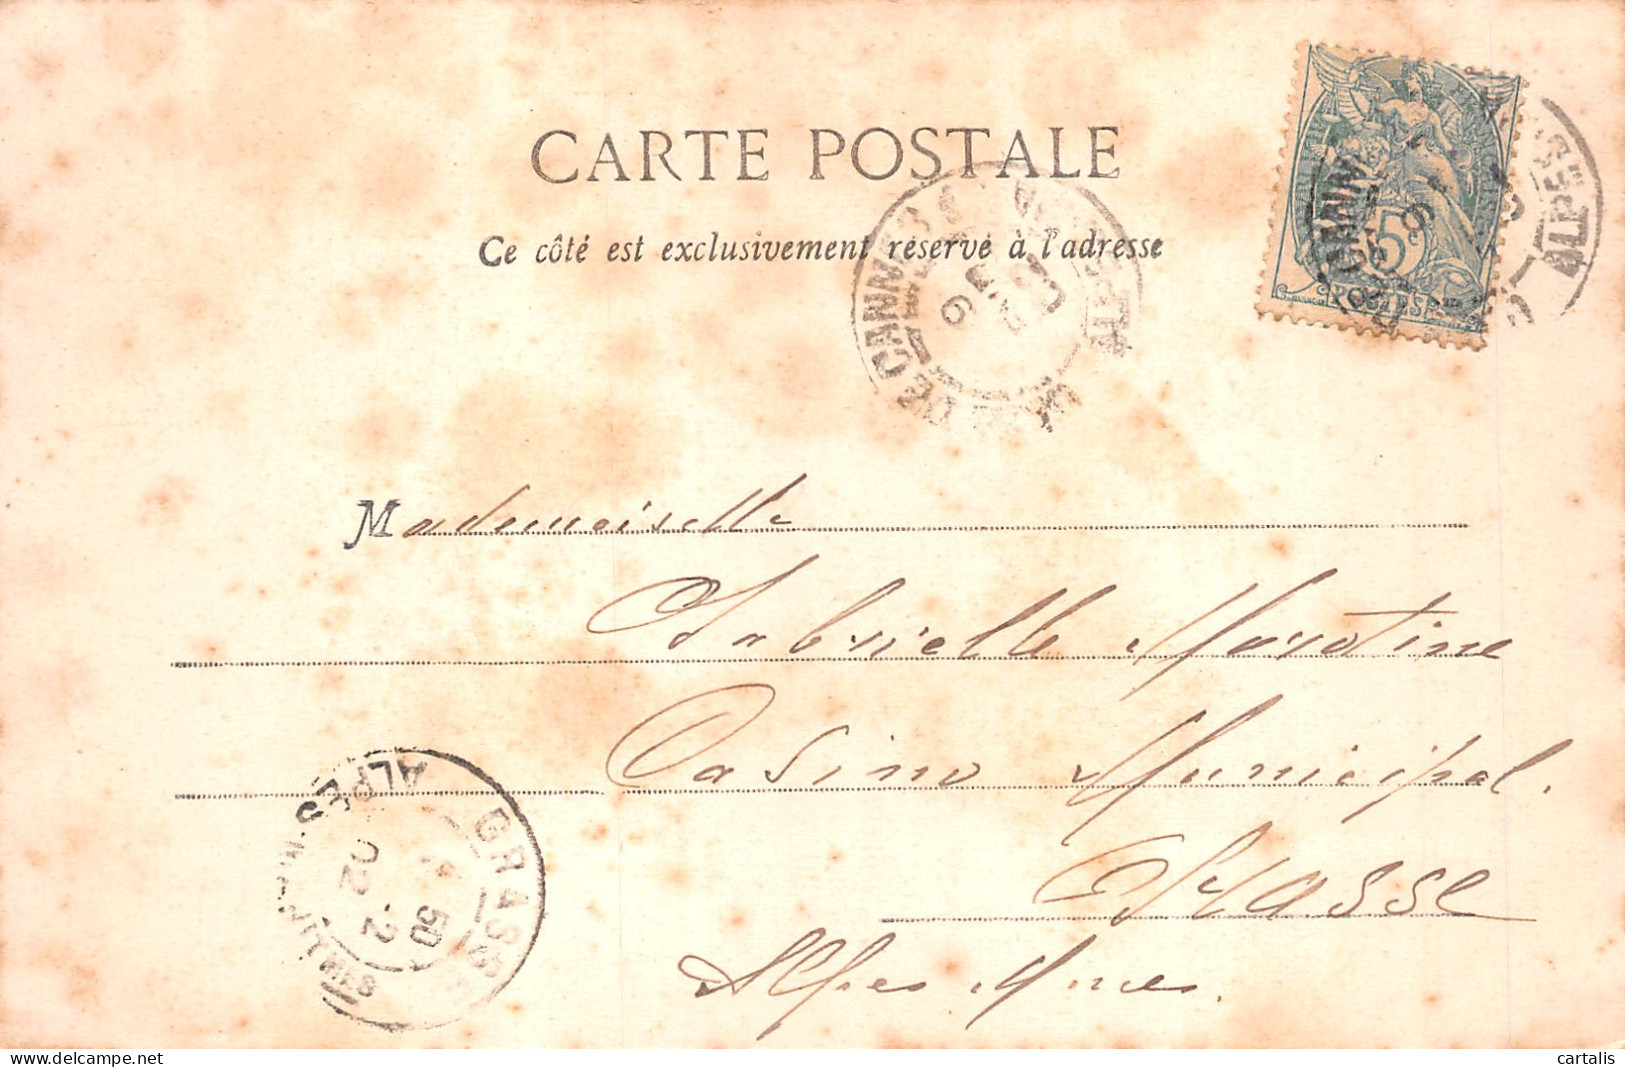 CARTE POSTALE
Ce côté est exclusivement réservé à l'adresse
5
POSTES
DE CANNES
Mademoiselle
Gabrielle Martine
Casino Municipal.
Grasse
Alpes Mmes.
GRASSE
ALPES-MARITIMES
50
2
02
cartalis